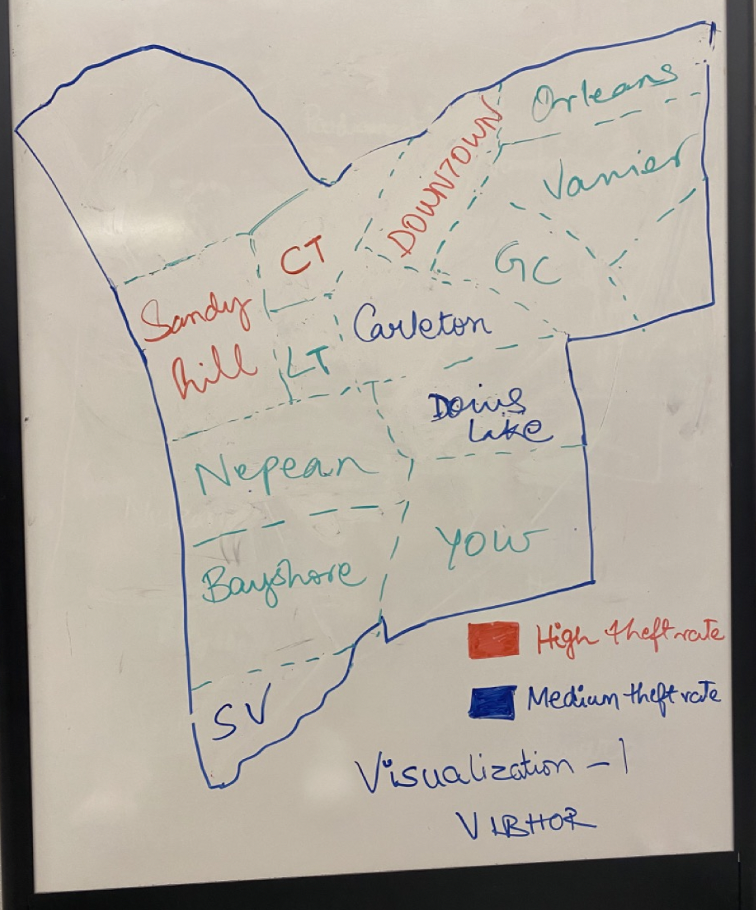 Orleans
Vanier
DOWNTOWN
CT
GC
Sandy
hill
Carleton
LT
Dows
Lake
Nepean
YOW
Bayshore
High theft rate
SV
Medium theft rate
Visualization - 1
VIBHOR